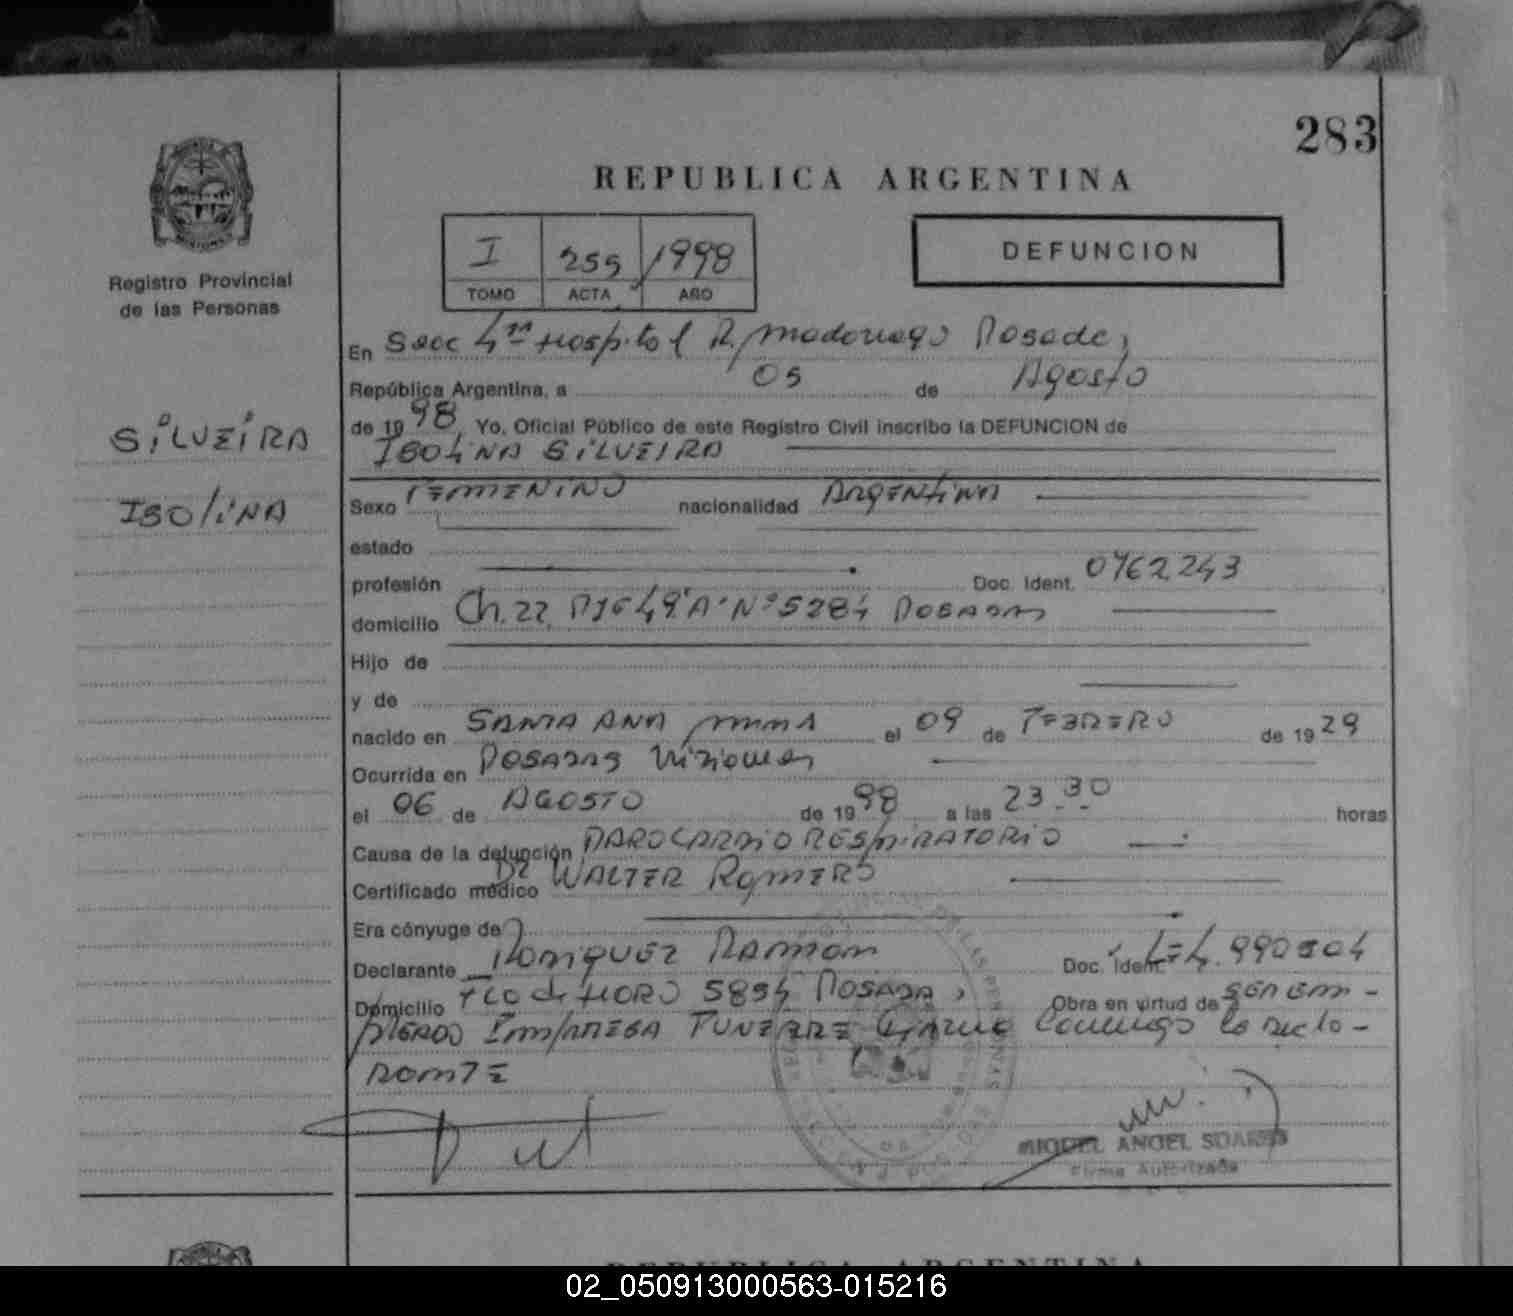 283
REPUBLICA ARGENTINA
Registro Provincial
de las Personas
I 255 1998
TOMO ACTA AÑO
DEFUNCION
En Secc 4ta Hospital R. Madariaga Posadas,
República Argentina, a 05 de Agosto
de 1998 Yo, Oficial Público de este Registro Civil inscribo la DEFUNCION de
ISOLINA SILVEIRA
SILVEIRA
ISOLINA
Sexo FEMENINO nacionalidad ARGENTINA
estado
profesión Doc. Ident. 0762243
domicilio Ch. 22 N° 5284 POSADAS
Hijo de
y de
nacido en SANTA ANA el 09 de FEBRERO de 1929
Ocurrida en POSADAS Misiones
el 06 de AGOSTO de 1998 a las 23.30 horas
Causa de la defunción PAROCARDIORESPIRATORIO
Certificado médico Dr WALTER ROMERO
Era cónyuge de
Declarante RODRIGUEZ RAMON Doc. Ident.
Domicilio POSADAS Obra en virtud de ser Em-
PLEADO FUNEBRE
RANTE
MIGUEL ANGEL SUAREZ
Firma Autorizada
REPUBLICA ARGENTINA
02_050913000563-015216